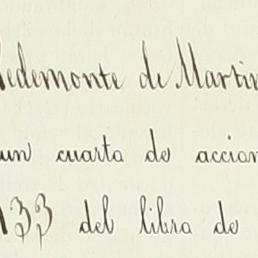 Vedemonte de Martin
un cuarta de accion
133 del libra de